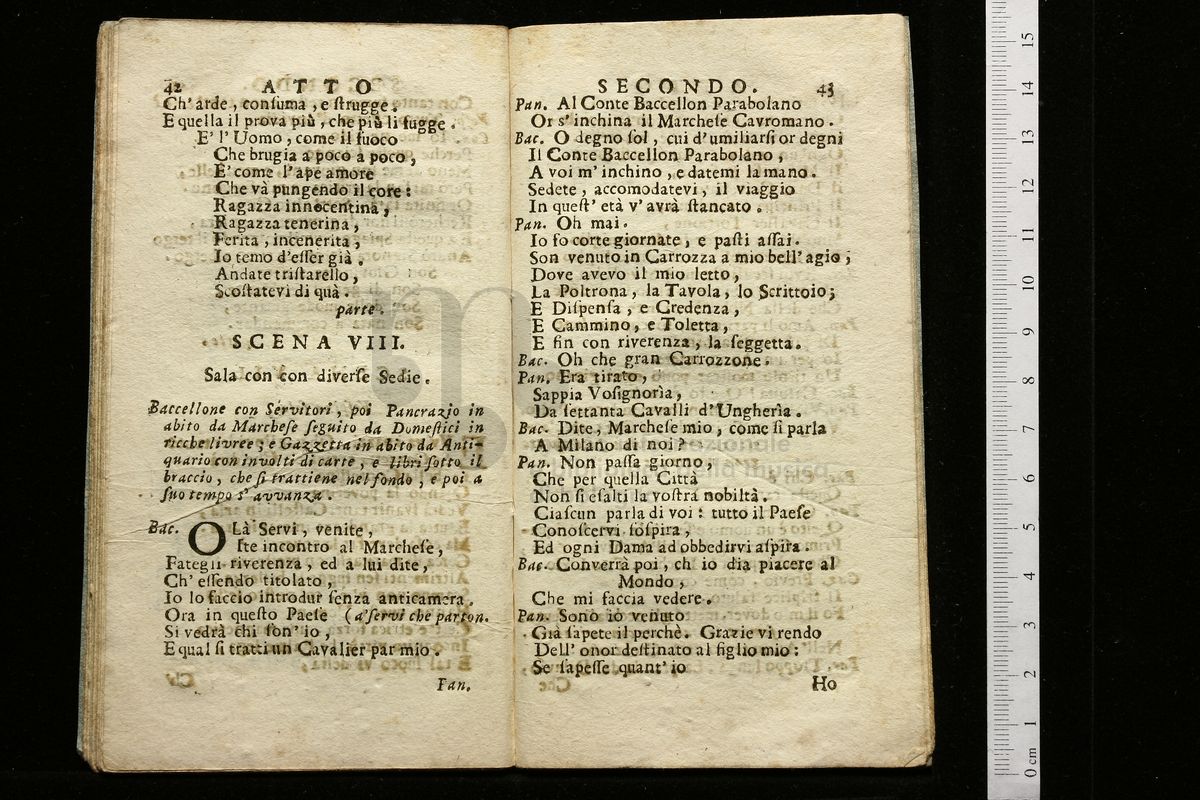 42 ATTO
Ch' arde, consuma, e strugge.
E quella il prova più, che più li fugge.
E' l' Uomo, come il fuoco
Che brugia a poco a poco,
E' come l' ape amore
Che và pungendo il core:
Ragazza innocentina,
Ragazza tenerina,
Ferita, incenerita,
Io temo d'esser già.
Andate tristarello,
Scostatevi di quà.
parte.
SCENA VIII.
Sala con con diverse Sedie.
Baccellone con Servitori, poi Pancrazio in
abito da Marchese seguito da Domestici in
ricche livree; e Gazzetta in abito da Anti-
quario con involti di carte, e libri sotto il
braccio, che si trattiene nel fondo, e poi a
suo tempo s' avvanza.
Bac. OLà Servi, venite,
Ite incontro al Marchese,
Fategli riverenza, ed a lui dite,
Ch' essendo titolato,
Io lo faccio introdur senza anticamera.
Ora in questo Paese (a' servi che parton.
Si vedrà chi son' io,
E qual si tratti un Cavalier par mio.
Pan.
SECONDO. 43
Pan. Al Conte Baccellon Parabolano
Or s' inchina il Marchese Cavromano.
Bac. O degno sol, cui d'umiliarsi or degni
Il Conte Baccellon Parabolano,
A voi m' inchino, e datemi la mano.
Sedete, accomodatevi, il viaggio
In quest' età v' avrà stancato.
Pan. Oh mai.
Io fo corte giornate, e pasti assai.
Son venuto in Carrozza a mio bell' agio;
Dove avevo il mio letto,
La Poltrona, la Tavola, lo Scrittoio;
E Dispensa, e Credenza,
E Cammino, e Toletta,
E fin con riverenza, la seggetta.
Bac. Oh che gran Carrozzone.
Pan. Era tirato,
Sappia Vosignorìa,
Da settanta Cavalli d'Ungherìa.
Bac. Dite, Marchese mio, come si parla
A Milano di noi?
Pan. Non passa giorno,
Che per quella Città
Non si esalti la vostra nobiltà.
Ciascun parla di voi: tutto il Paese
Conoscervi sospira,
Ed ogni Dama ad obbedirvi aspira.
Bac. Converrà poi, ch io dia piacere al
Mondo,
Che mi faccia vedere.
Pan. Sono io venuto
Già sapete il perchè. Grazie vi rendo
Dell' onor destinato al figlio mio:
Se sapesse quant' io
Ho